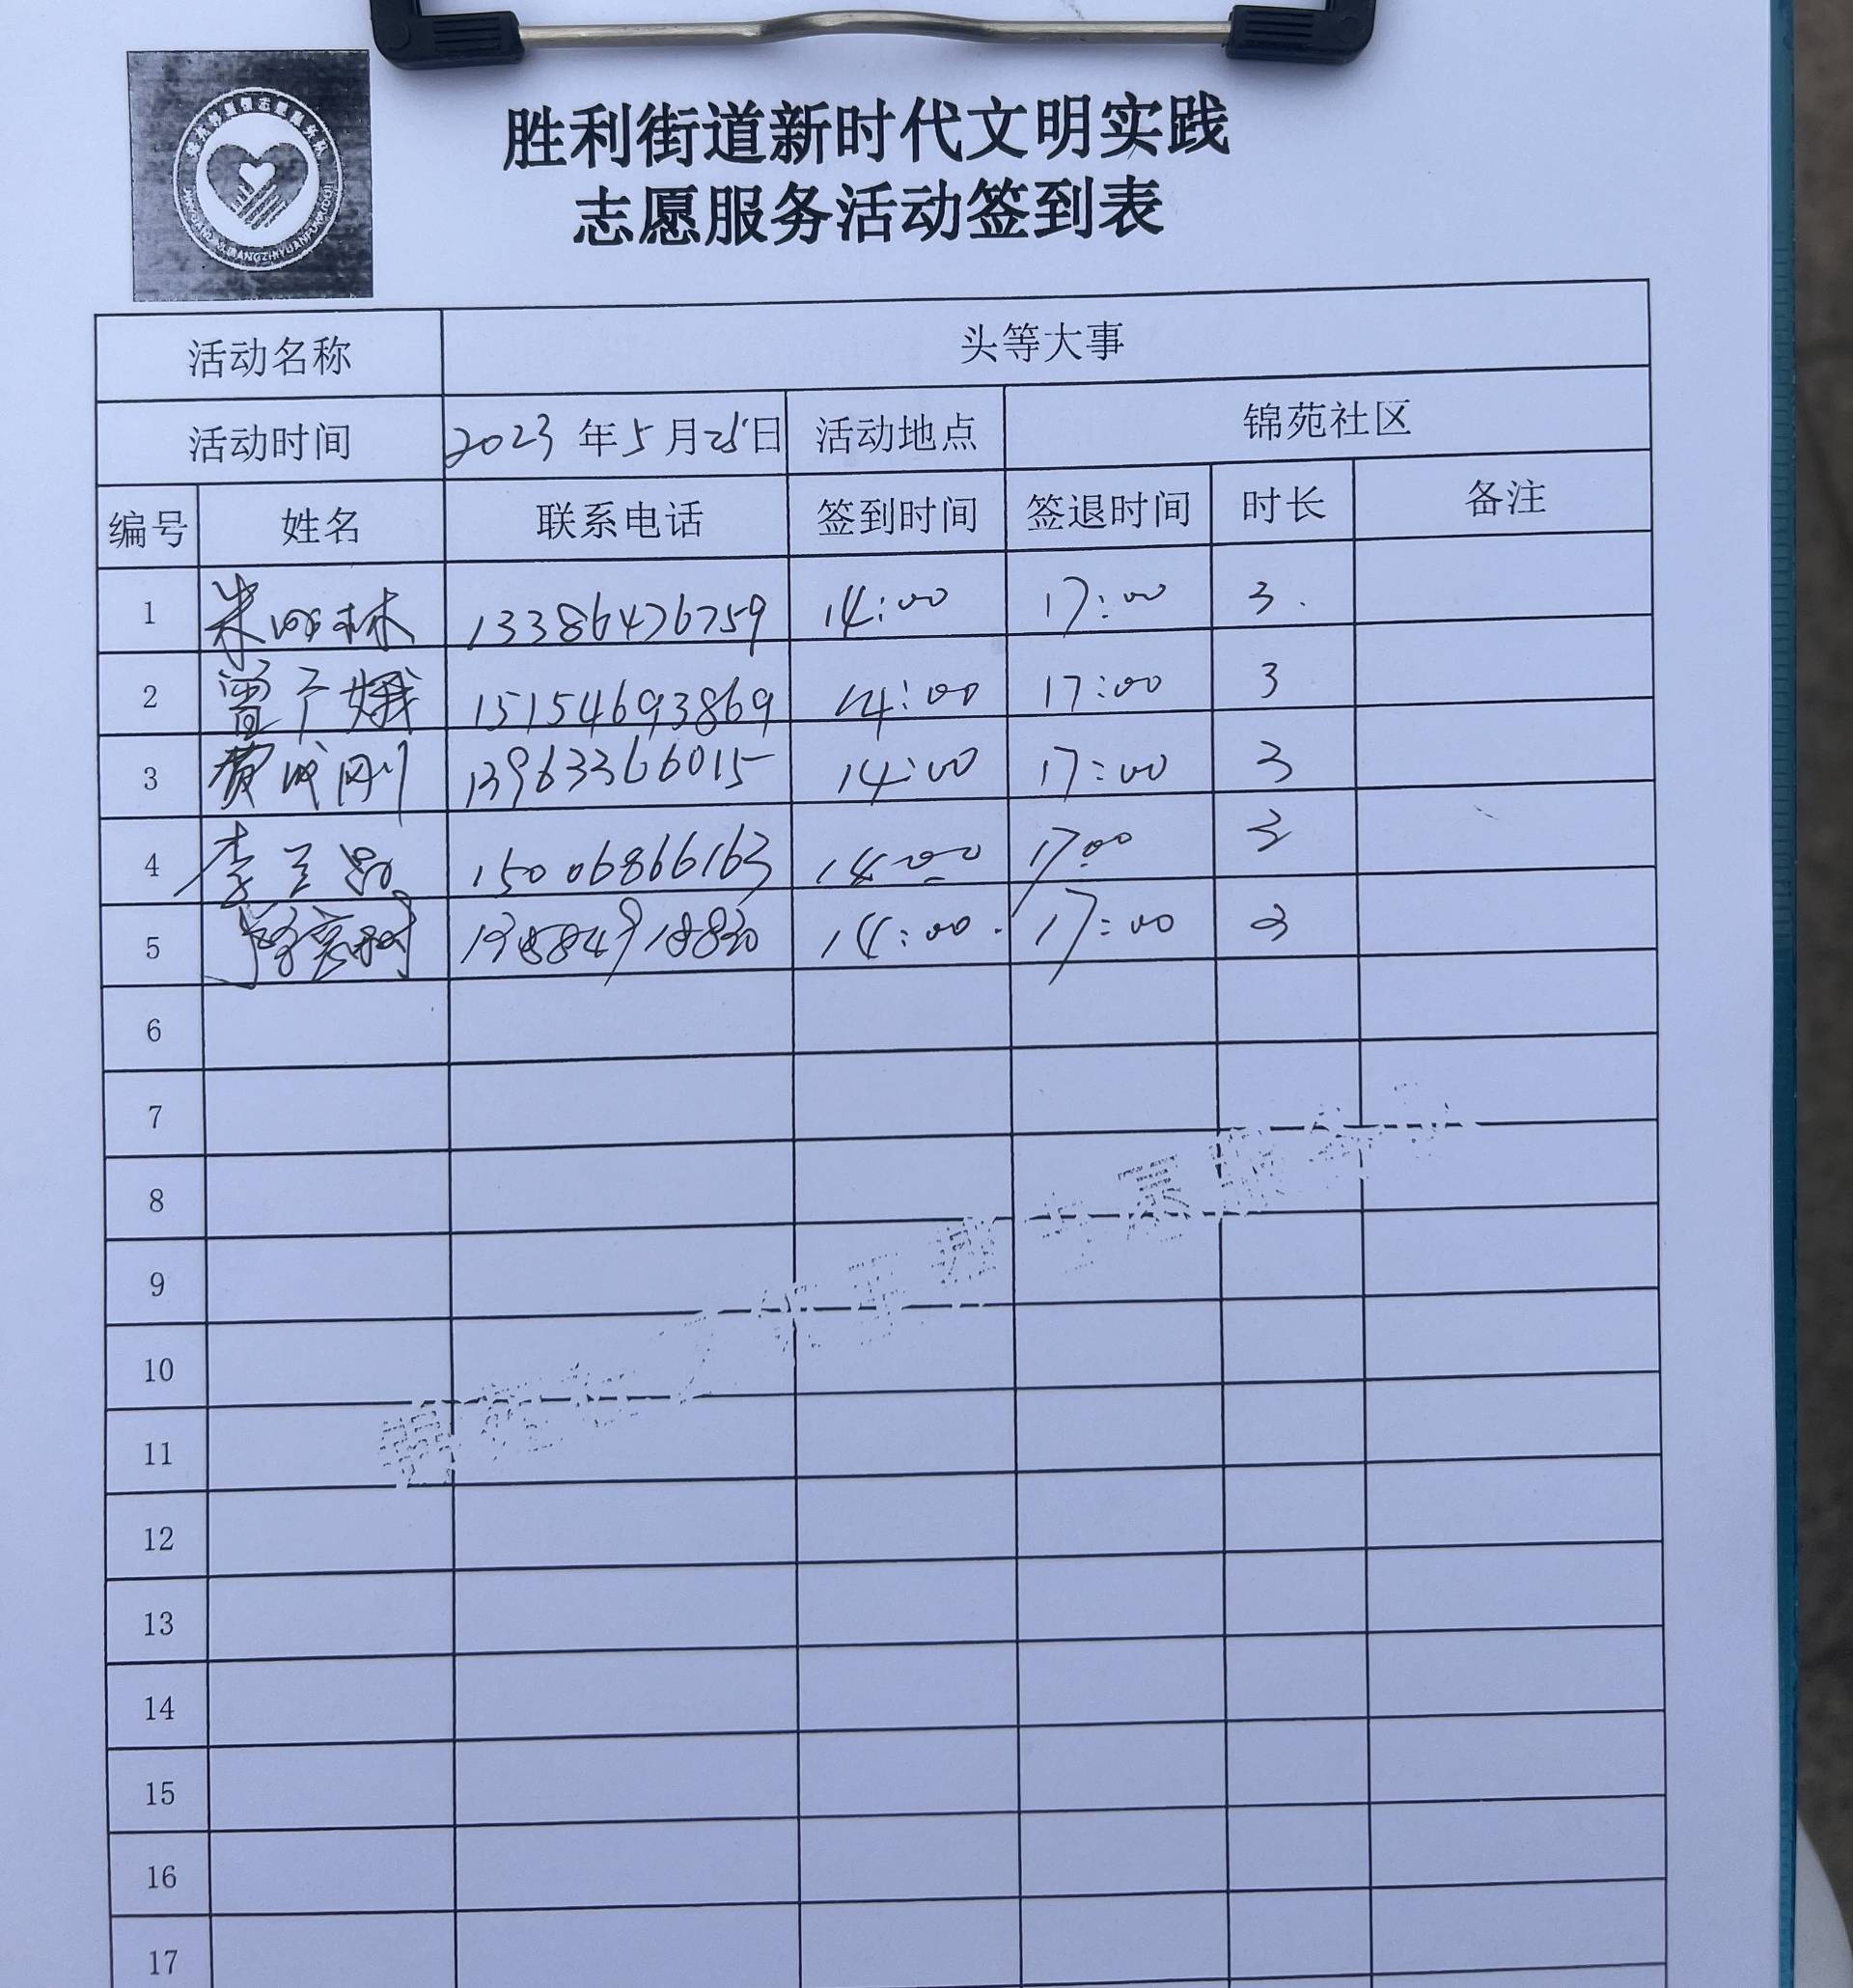 胜利街道新时代文明实践
志愿服务活动签到表
活动名称 头等大事
活动时间 2023年5月25日 活动地点 锦苑社区
编号 姓名 联系电话 签到时间 签退时间 时长 备注
1 朱 林 13386476759 14:00 17:00 3.
2 曾广娥 15154693869 14:00 17:00 3
3 黄成刚 13963366015 14:00 17:00 3
4 李兰 15006866163 14:00 17:00 3
5 14:00. 17:00 3
6
7
8
9
10
11
12
13
14
15
16
17